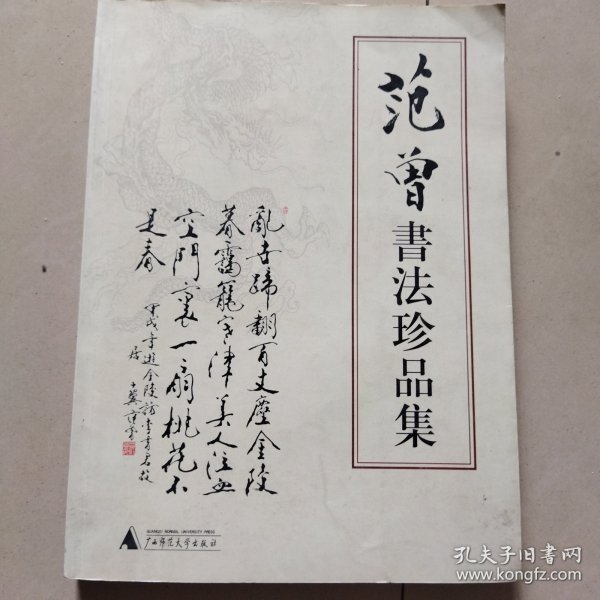 范曾書法珍品集
亂世蹄翻百丈塵金陵
暮靄籠寒津美人泣血
空門裏一扇桃花不
是春
甲戌年遊金陵訪李香君故
居
十翼范曾
GUANGXI NORMAL UNIVERSITY PRESS
广西师范大学出版社
孔夫子旧书网
www.kongfz.com